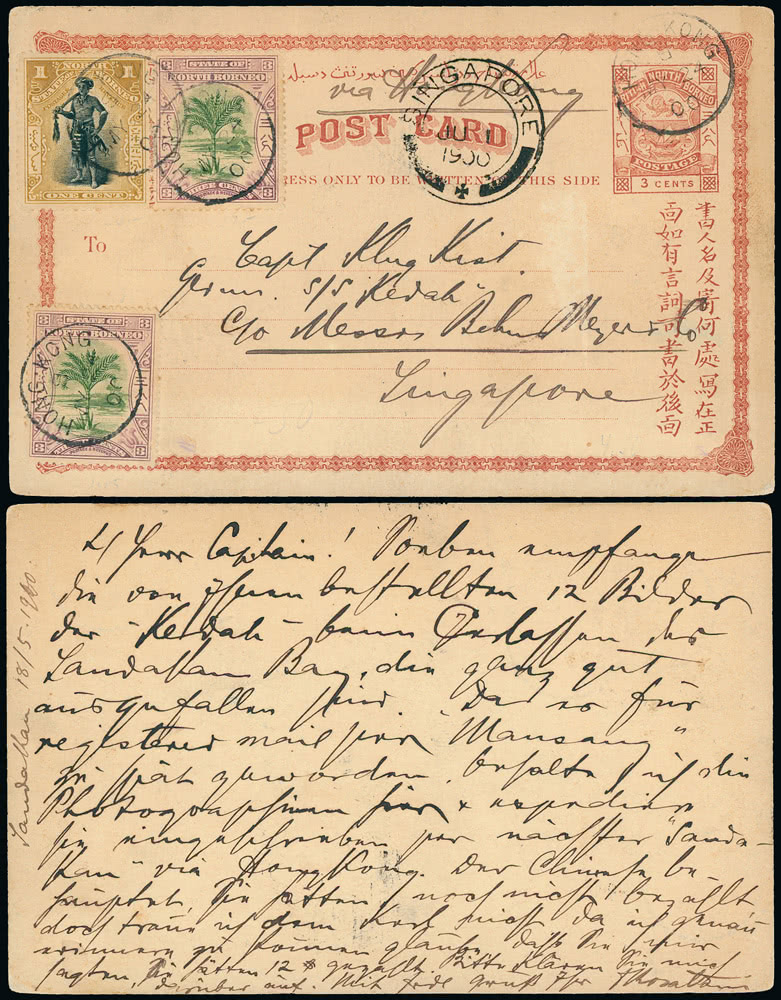 STATE OF
NORTH BORNEO
1 1
ONE CENT
STATE OF
NORTH BORNEO
THREE CENTS
HONG KONG
via Hongkong
SINGAPORE
JU 1
1900
POST CARD
RESS ONLY TO BE WRITTEN ON THIS SIDE
HONG KONG
MY 24
00
BRITISH NORTH BORNEO
POSTAGE
3 CENTS
To
Capt Klug Kist
Germ. S/S "Kedah"
c/o Messrs Behn Meyer & Co
Singapore
3 STATE OF 3
NORTH BORNEO
3 THREE CENTS 3
HONG KONG
書人名及寄何處寫在正
面如有言詞可書於後面
Sandakan 18/5. 1900.
Herr Capitain! Soeben empfange
die von Ihnen bestellten 12 Bilder
der "Kedah" beim Verlassen der
Sandakan Bay, die ganz gut
ausgefallen sind. Da es für
registered mail per "Mausang"
zu spät geworden, behalte ich die
Photographieen hier & expediere
sie eingeschrieben per nächster "Sanda-
kan" via HongKong. Der Chinese be-
hauptet, Sie hätten noch nicht bezahlt
doch traue ich dem Kerl nicht da ich genau
erinnern zu können glaube, dass Sie mir
sagten, Sie hätten 12 $ gezahlt. Bitte klären Sie mich
darüber auf. Mit Gruß Ihr